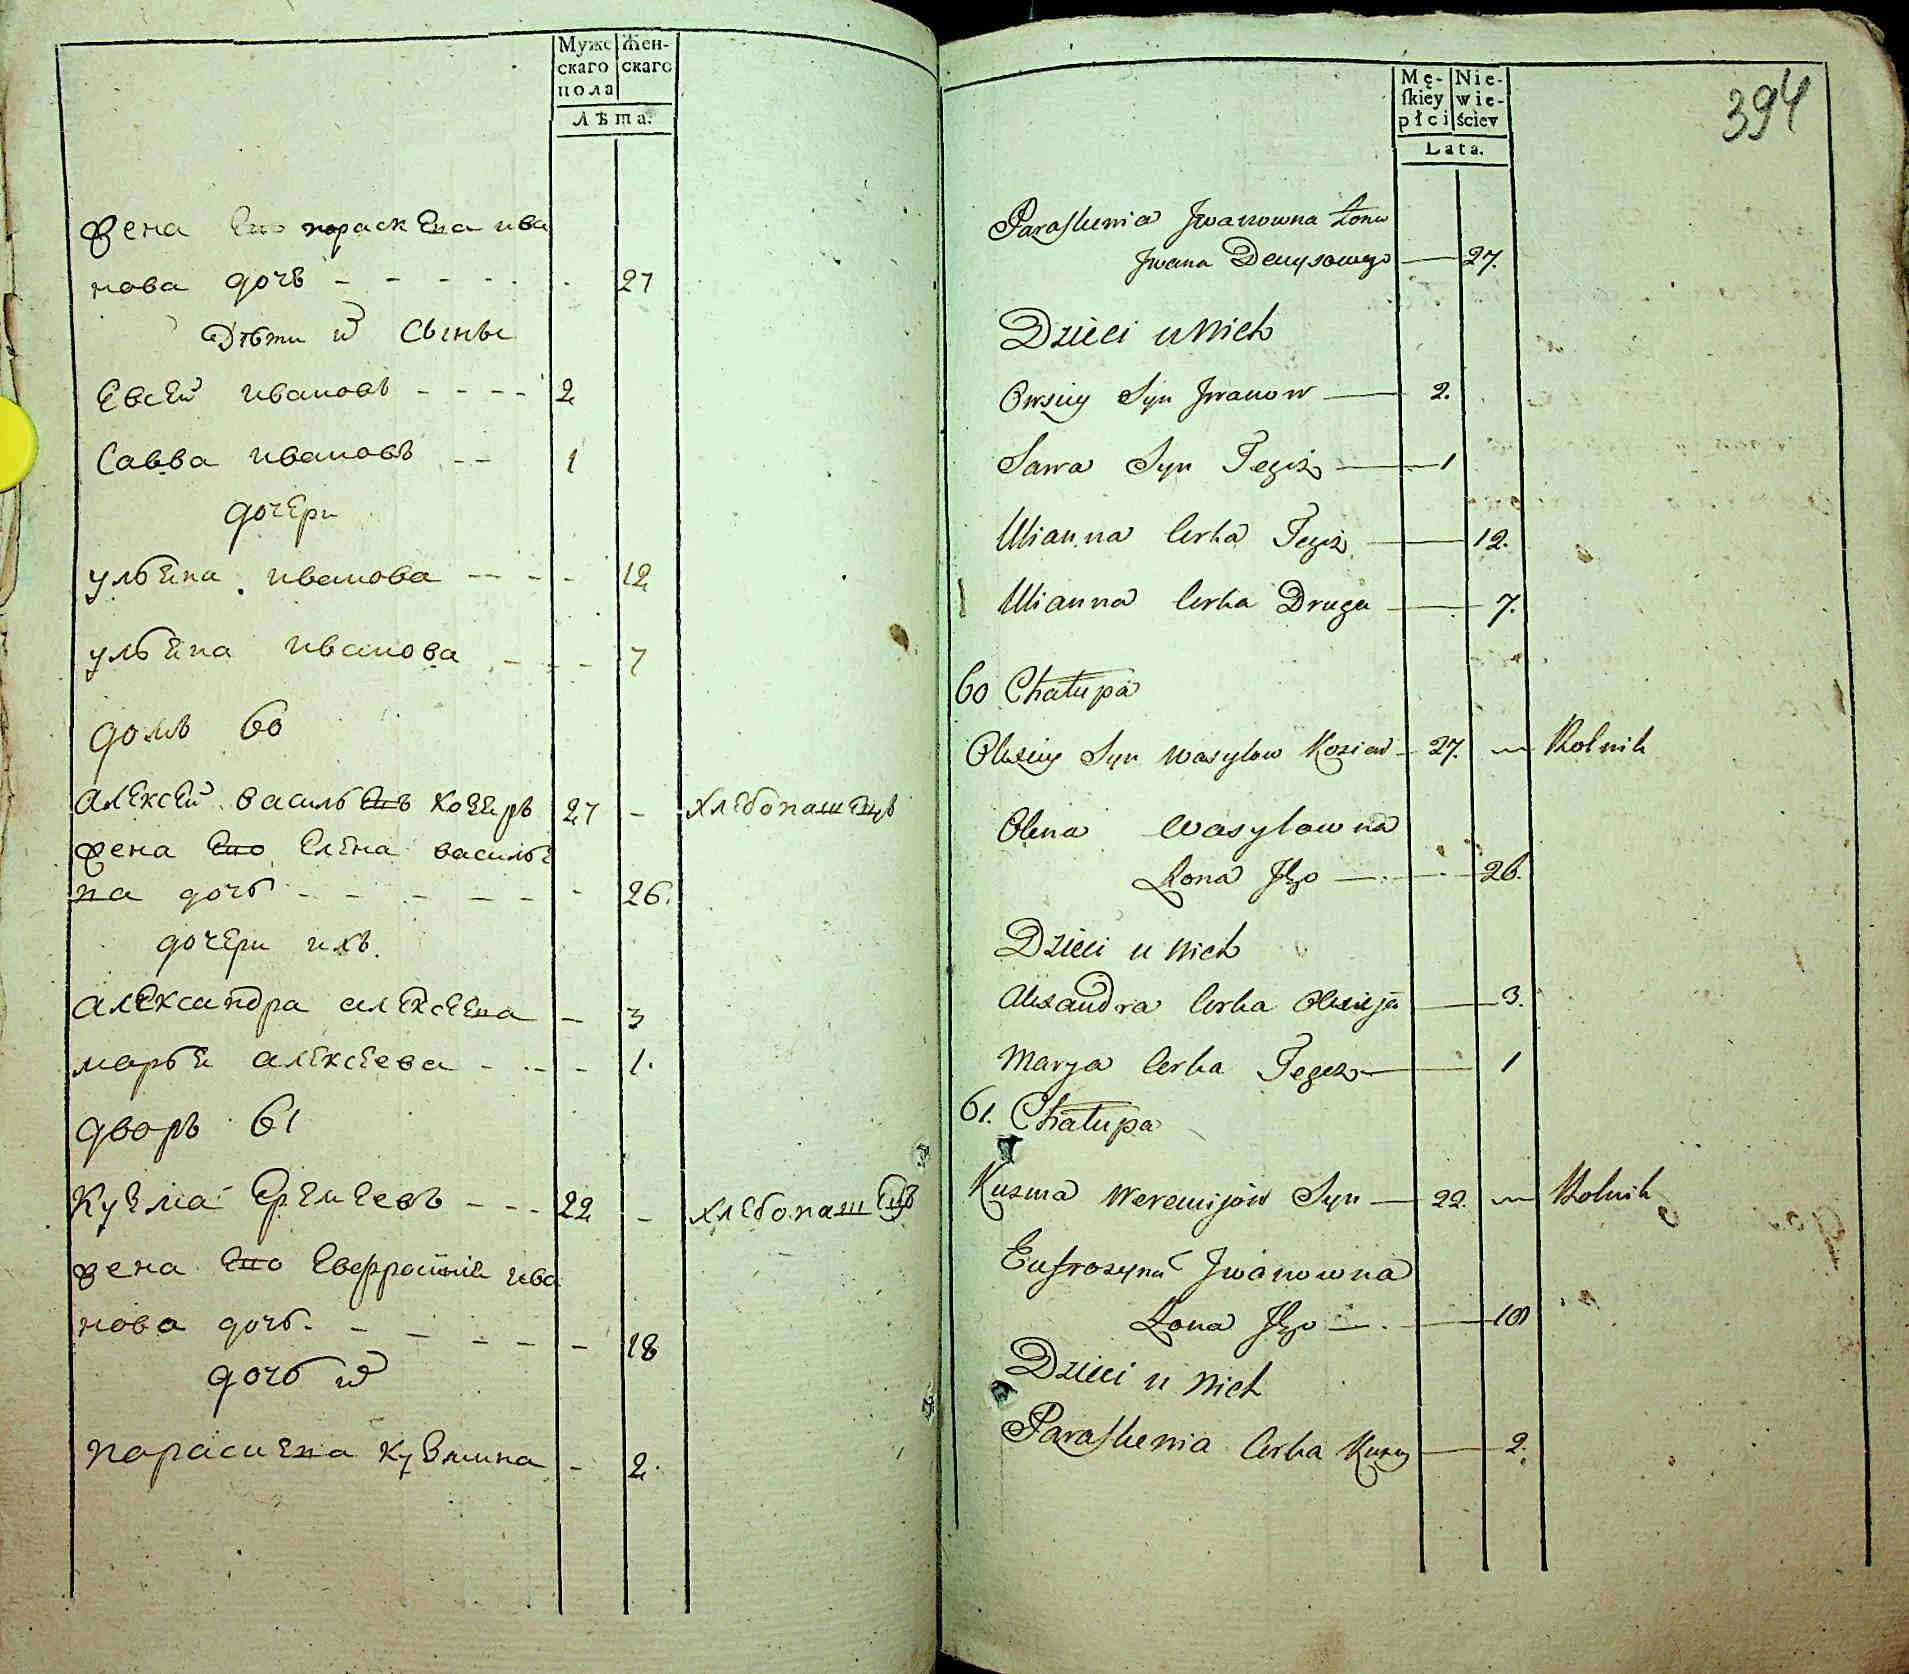 Муже Жен-
скаго скаго
пола
Лѣта.
жена Ево параскева ива
нова дочь - - - - - - 27
Дѣти их Сыны
Евсей ивановъ - - - - 2
Савва ивановъ - - 1
дочери
ульяна иванова - - - - 12
ульяна иванова - - - 7
домъ 60
Алексей васильевъ козыръ 27 - хлебопашецъ
жена Ево Елена василье
ва дочь - - - - - - 26.
дочери ихъ.
александра алексеева - 3
марья алексеева - - - 1.
дворъ 61
Кузма Еремеевъ - - - 22 - хлебопашецъ
жена Ево ива
нова дочь - - - - - - 18
дочь их
парасковья кузмина - 2.
394
Mę- Nie-
ſkiey wie-
płci ściey
Lata.
Paraskewia Jwanowna Żona
Jwana Denysowego — 27.
Dzieci u Nich
Owsiey Syn Jwanow — 2.
Sawa Syn Tegoż — 1
Ulianna Corka Tegoż — 12.
Ulianna Corka Druga — 7.
60 Chałupa
Olexiey Syn Wasylow — 27. — Rolnik
Olena Wasylowna
Żona Jego — 26.
Dzieci u Nich
Alexandra Corka Olexieja — 3.
Marya Corka Tegoż — 1
61. Chałupa
Kuzma Weremijów Syn — 22. — Rolnik
Eufrozyna Jwanowna
Żona Jego — 18
Dzieci u Nich
Paraskewia Corka Kuzmy — 2.